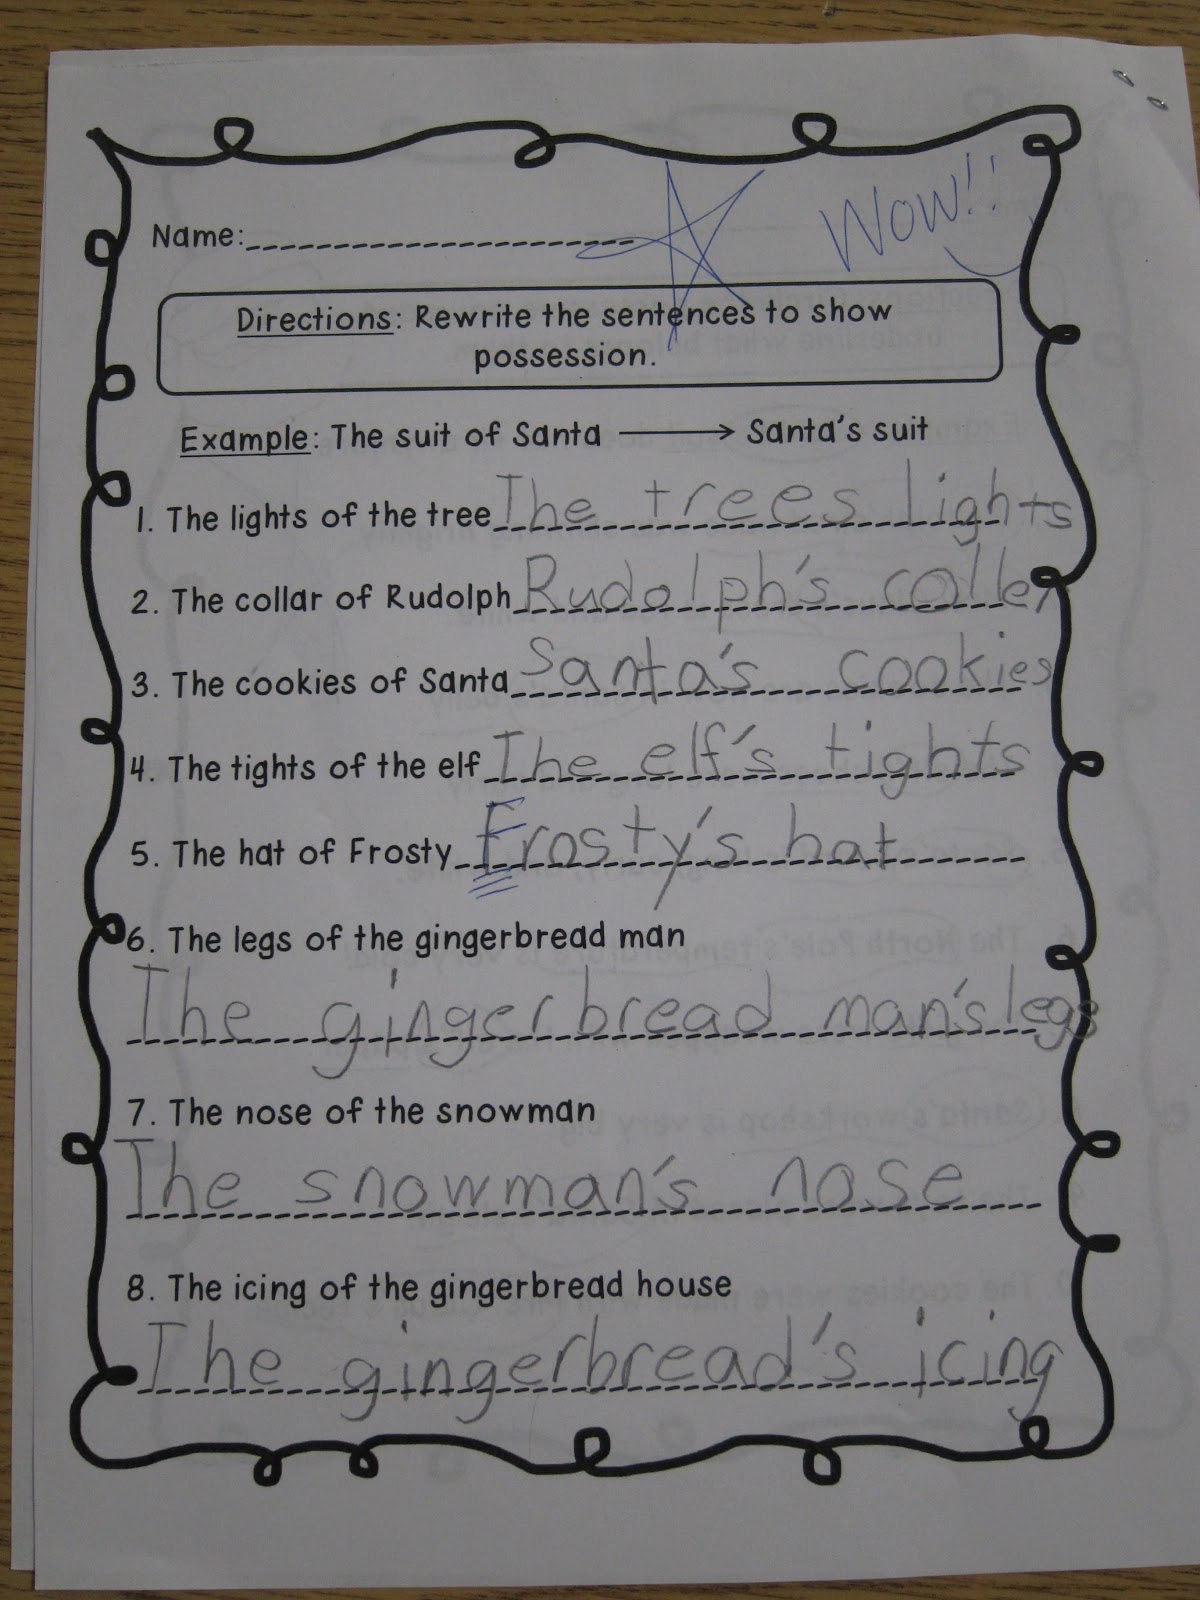 Wow!!
Name:
Directions: Rewrite the sentences to show
possession.
Example: The suit of Santa → Santa's suit
1. The lights of the tree The trees lights
2. The collar of Rudolph Rudolph's coller
3. The cookies of Santa Santa's cookies
4. The tights of the elf The elf's tights
5. The hat of Frosty Frosty's hat
6. The legs of the gingerbread man
The gingerbread man's legs
7. The nose of the snowman
The snowman's nose
8. The icing of the gingerbread house
The gingerbread's icing